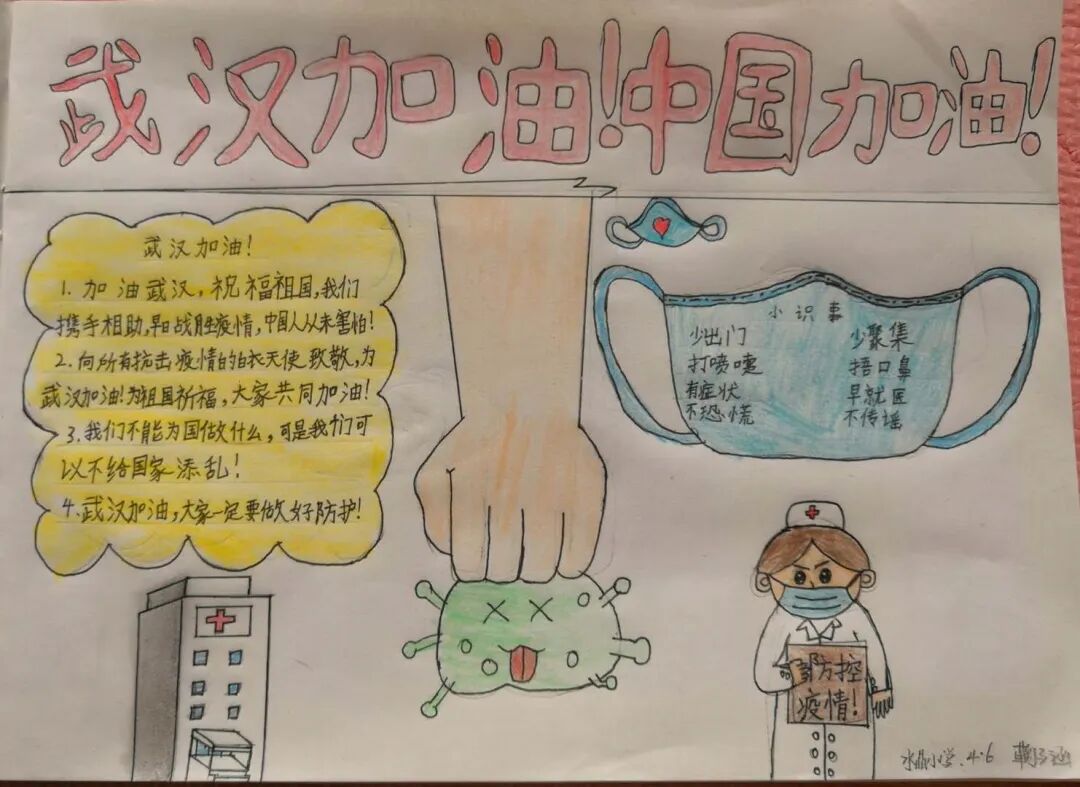 武汉加油!中国加油!
武汉加油!
1. 加油武汉，祝福祖国，我们
携手相助，早日战胜疫情，中国人从未害怕!
2. 向所有抗击疫情的白衣天使致敬，为
武汉加油!为祖国祈福，大家共同加油!
3. 我们不能为国做什么，可是我们可
以不给国家添乱!
4. 武汉加油，大家一定要做好防护!
小识事
少出门 少聚集
打喷嚏 捂口鼻
有症状 早就医
不恐慌 不传谣
防控
疫情!
水晶小学. 4.6